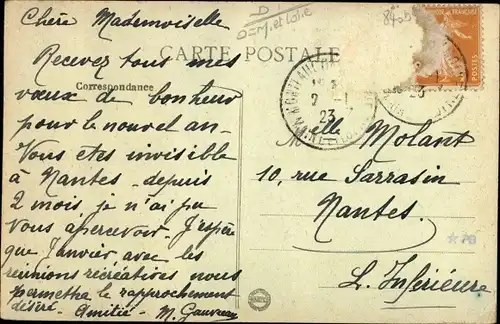 Chère Mademoiselle
CARTE POSTALE
Recevez tous mes
Correspondance
vœux de bonheur
pour le nouvel an-
Vous etes invisible
à Nantes - depuis
2 mois je n'ai pu
vous apercevoir. J'espère
que Janvier, avec les
réunions récréatives nous
permettra le rapprochement
désiré. Amitié - M. Gauvreau
23
23
Melle Molant
10, rue Sarrasin
Nantes.
L. Inférieure